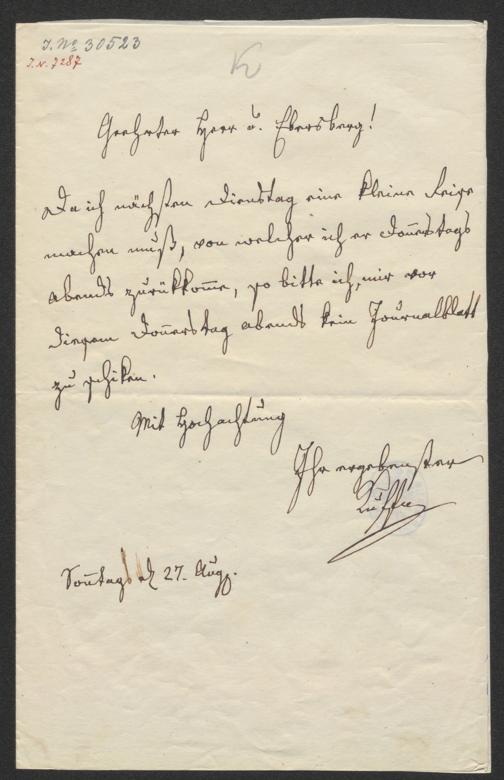 J. No 30523
I.N. 7287
K
Geehrter Herr v. Ebersberg!
Da ich nächsten Dienstag eine kleine Reise
machen muß, von welcher ich er Don̄erstags
abends zurükkom̄e, so bitte ich, mir vor
diesem Don̄erstag abends kein Journalblatt
zu schiken.
Mit Hochachtung
Ihr ergebenster
Son̄tags d 27. Aug.